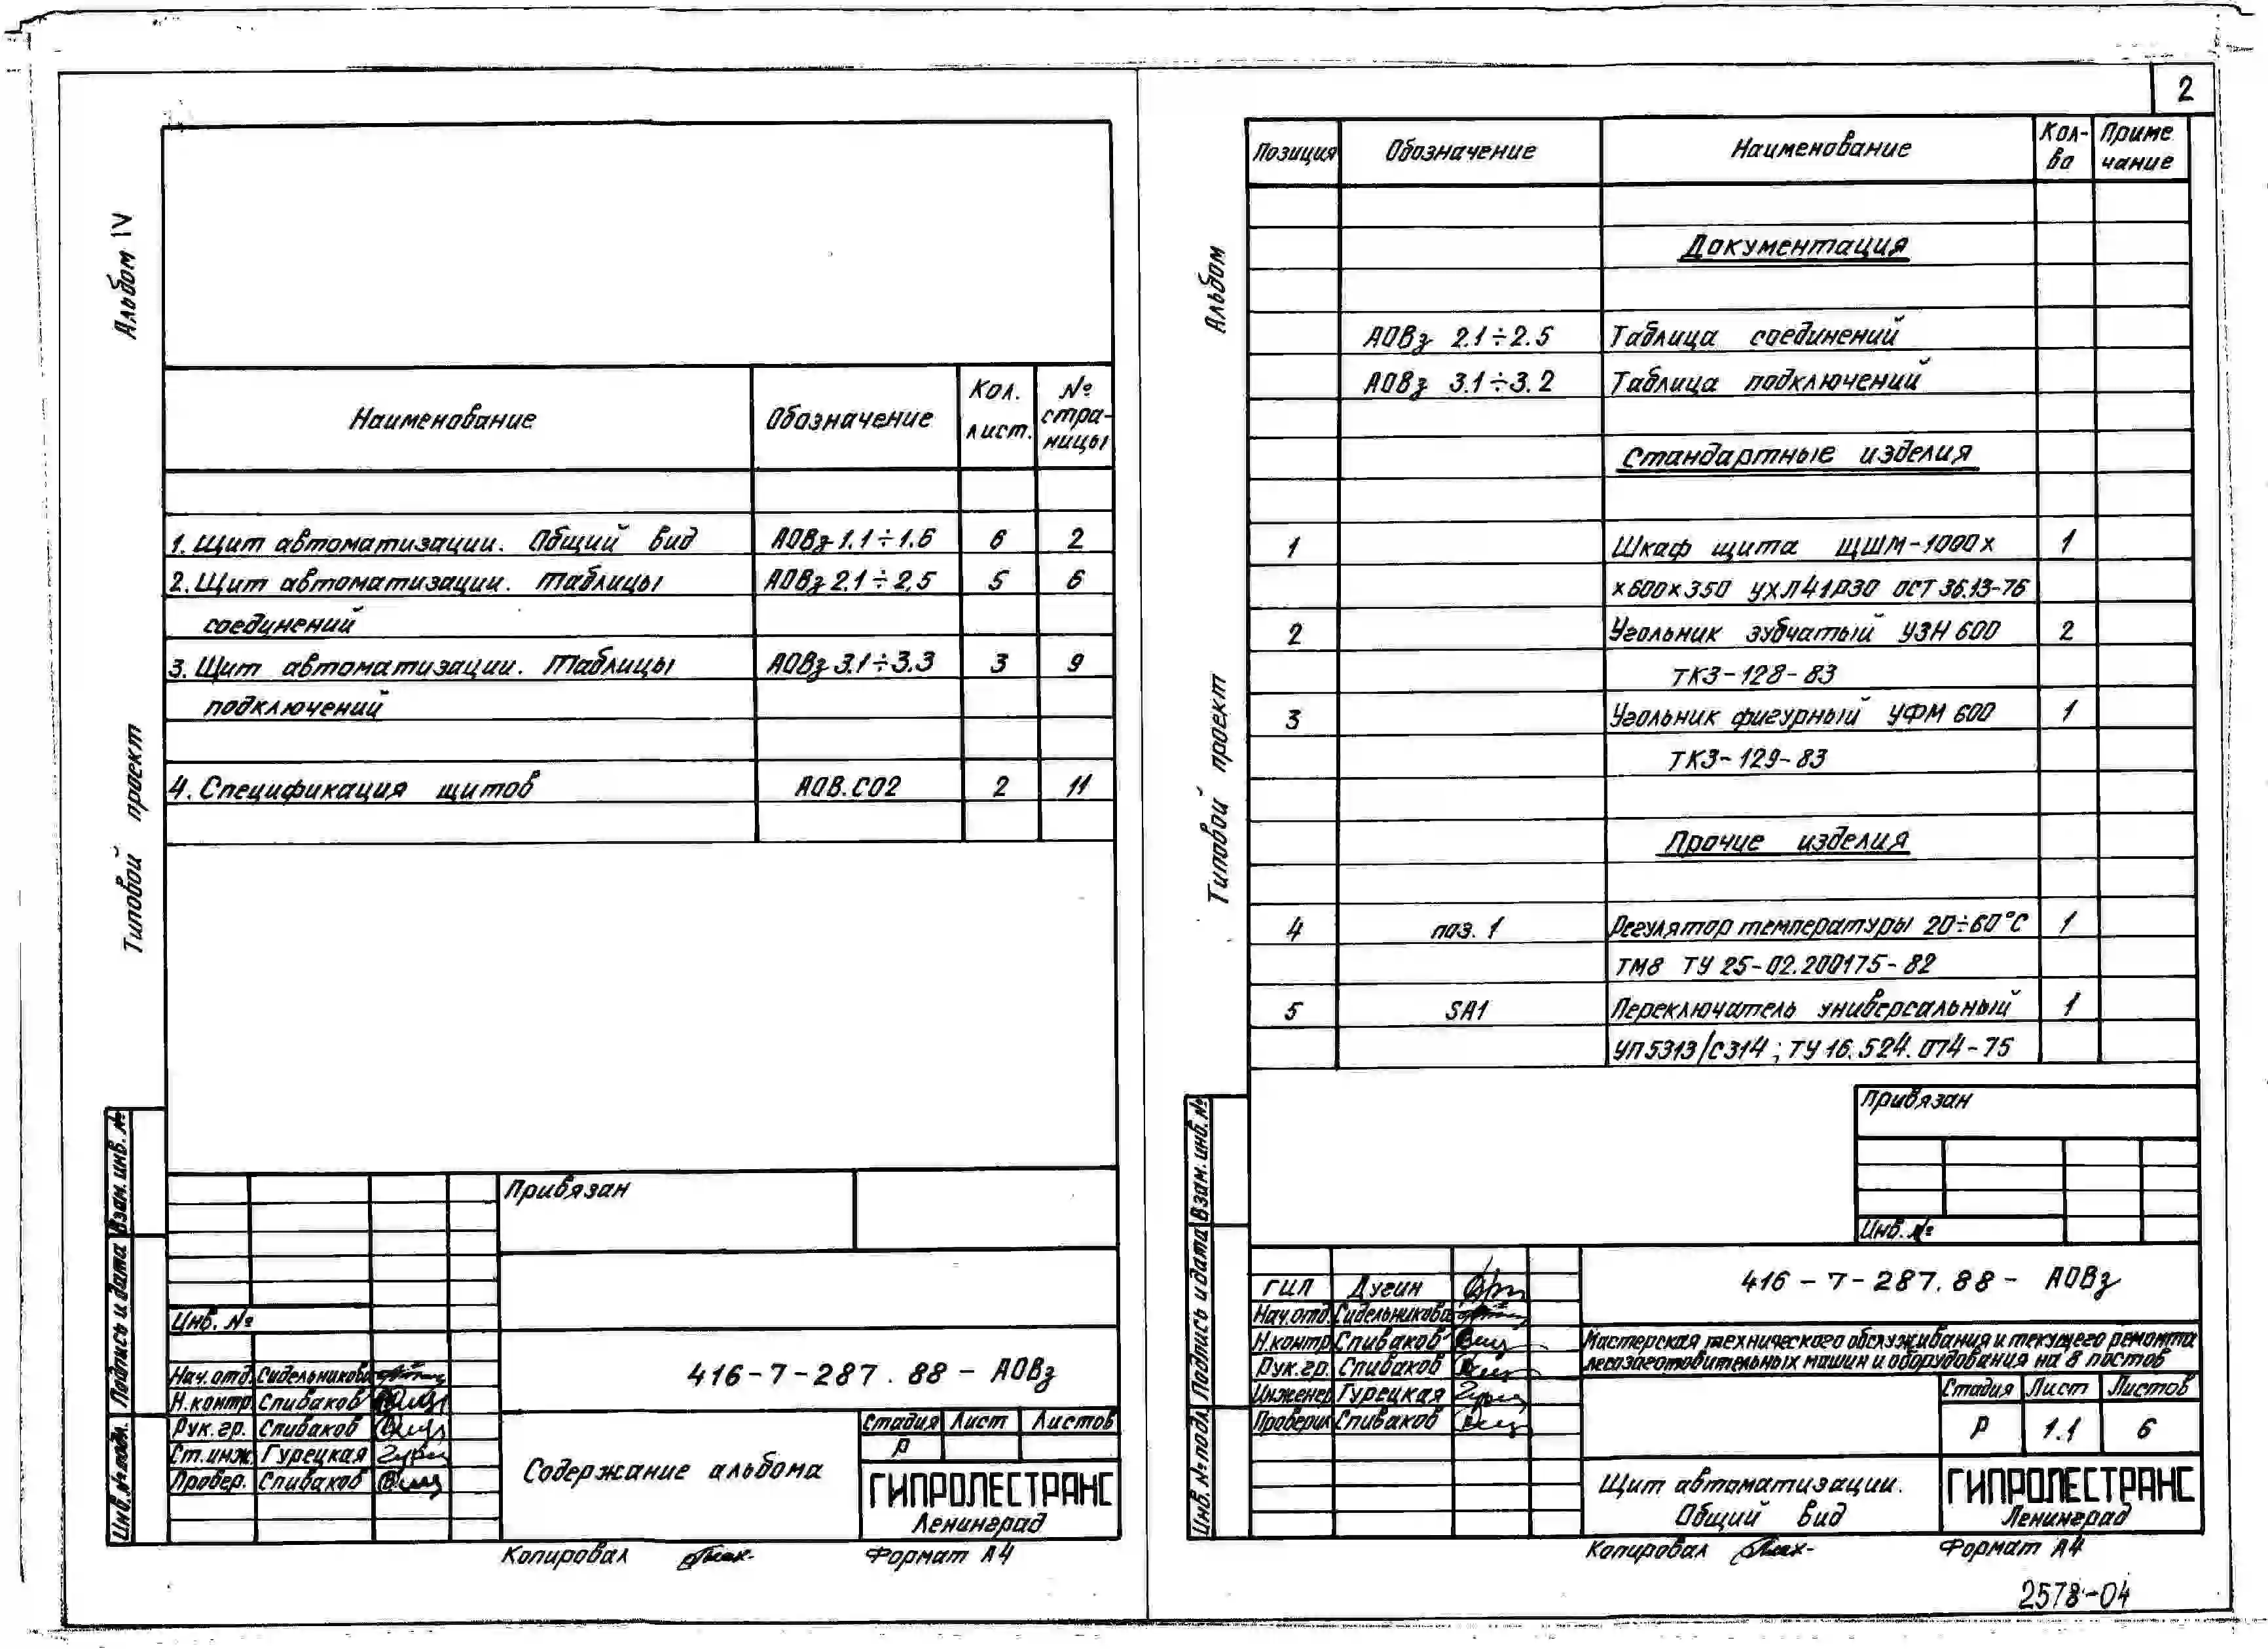 Альбом IV
Типовой проект
Наименование Обозначение Кол. лист. № стра-ницы
1. Щит автоматизации. Общий вид АОВз 1.1÷1.6 6 2
2. Щит автоматизации. Таблицы АОВз 2.1÷2.5 5 6
соединений
3. Щит автоматизации. Таблицы АОВз 3.1÷3.3 3 9
подключений
4. Спецификация щитов АОВ.СО2 2 11
Взам. инв. №
Подпись и дата
Инв. № подл.
Привязан
Инв. №
416-7-287.88-АОВз
Нач.отд. Сидельникова
Н.контр Спиваков
Рук.гр. Спиваков
Ст.инж. Гурецкая
Провер. Спиваков
Содержание альбома
Стадия Лист Листов
Р
ГИПРОЛЕСТРАНС
Ленинград
Копировал
Формат А4
2
Альбом
Типовой проект
Позиция Обозначение Наименование Кол-ва Приме чание
Документация
АОВз 2.1÷2.5 Таблица соединений
АОВз 3.1÷3.2 Таблица подключений
Стандартные изделия
1 Шкаф щита ЩШМ-1000х 1
х600х350 УХЛ41Р30 ОСТ 36.13-76
2 Угольник зубчатый УЗН 600 2
ТК3-128-83
3 Угольник фигурный УФМ 600 1
ТК3-129-83
Прочие изделия
4 поз. 1 Регулятор температуры 20÷60°С 1
ТМ8 ТУ 25-02.200175-82
5 SA1 Переключатель универсальный 1
УП5313/С314; ТУ 16.524.074-75
Взам. инв. №
Подпись и дата
Инв. № подл
Привязан
Инв. №
416-7-287.88-АОВз
ГИП Дугин
Нач.отд. Сидельникова
Н.контр Спиваков
Рук.гр. Спиваков
Инженер Гурецкая
Проверил Спиваков
Мастерская технического обслуживания и текущего ремонта
лесозаготовительных машин и оборудования на 8 постов
Стадия Лист Листов
Р 1.1 6
Щит автоматизации.
Общий вид
ГИПРОЛЕСТРАНС
Ленинград
Копировал
Формат А4
2578-04